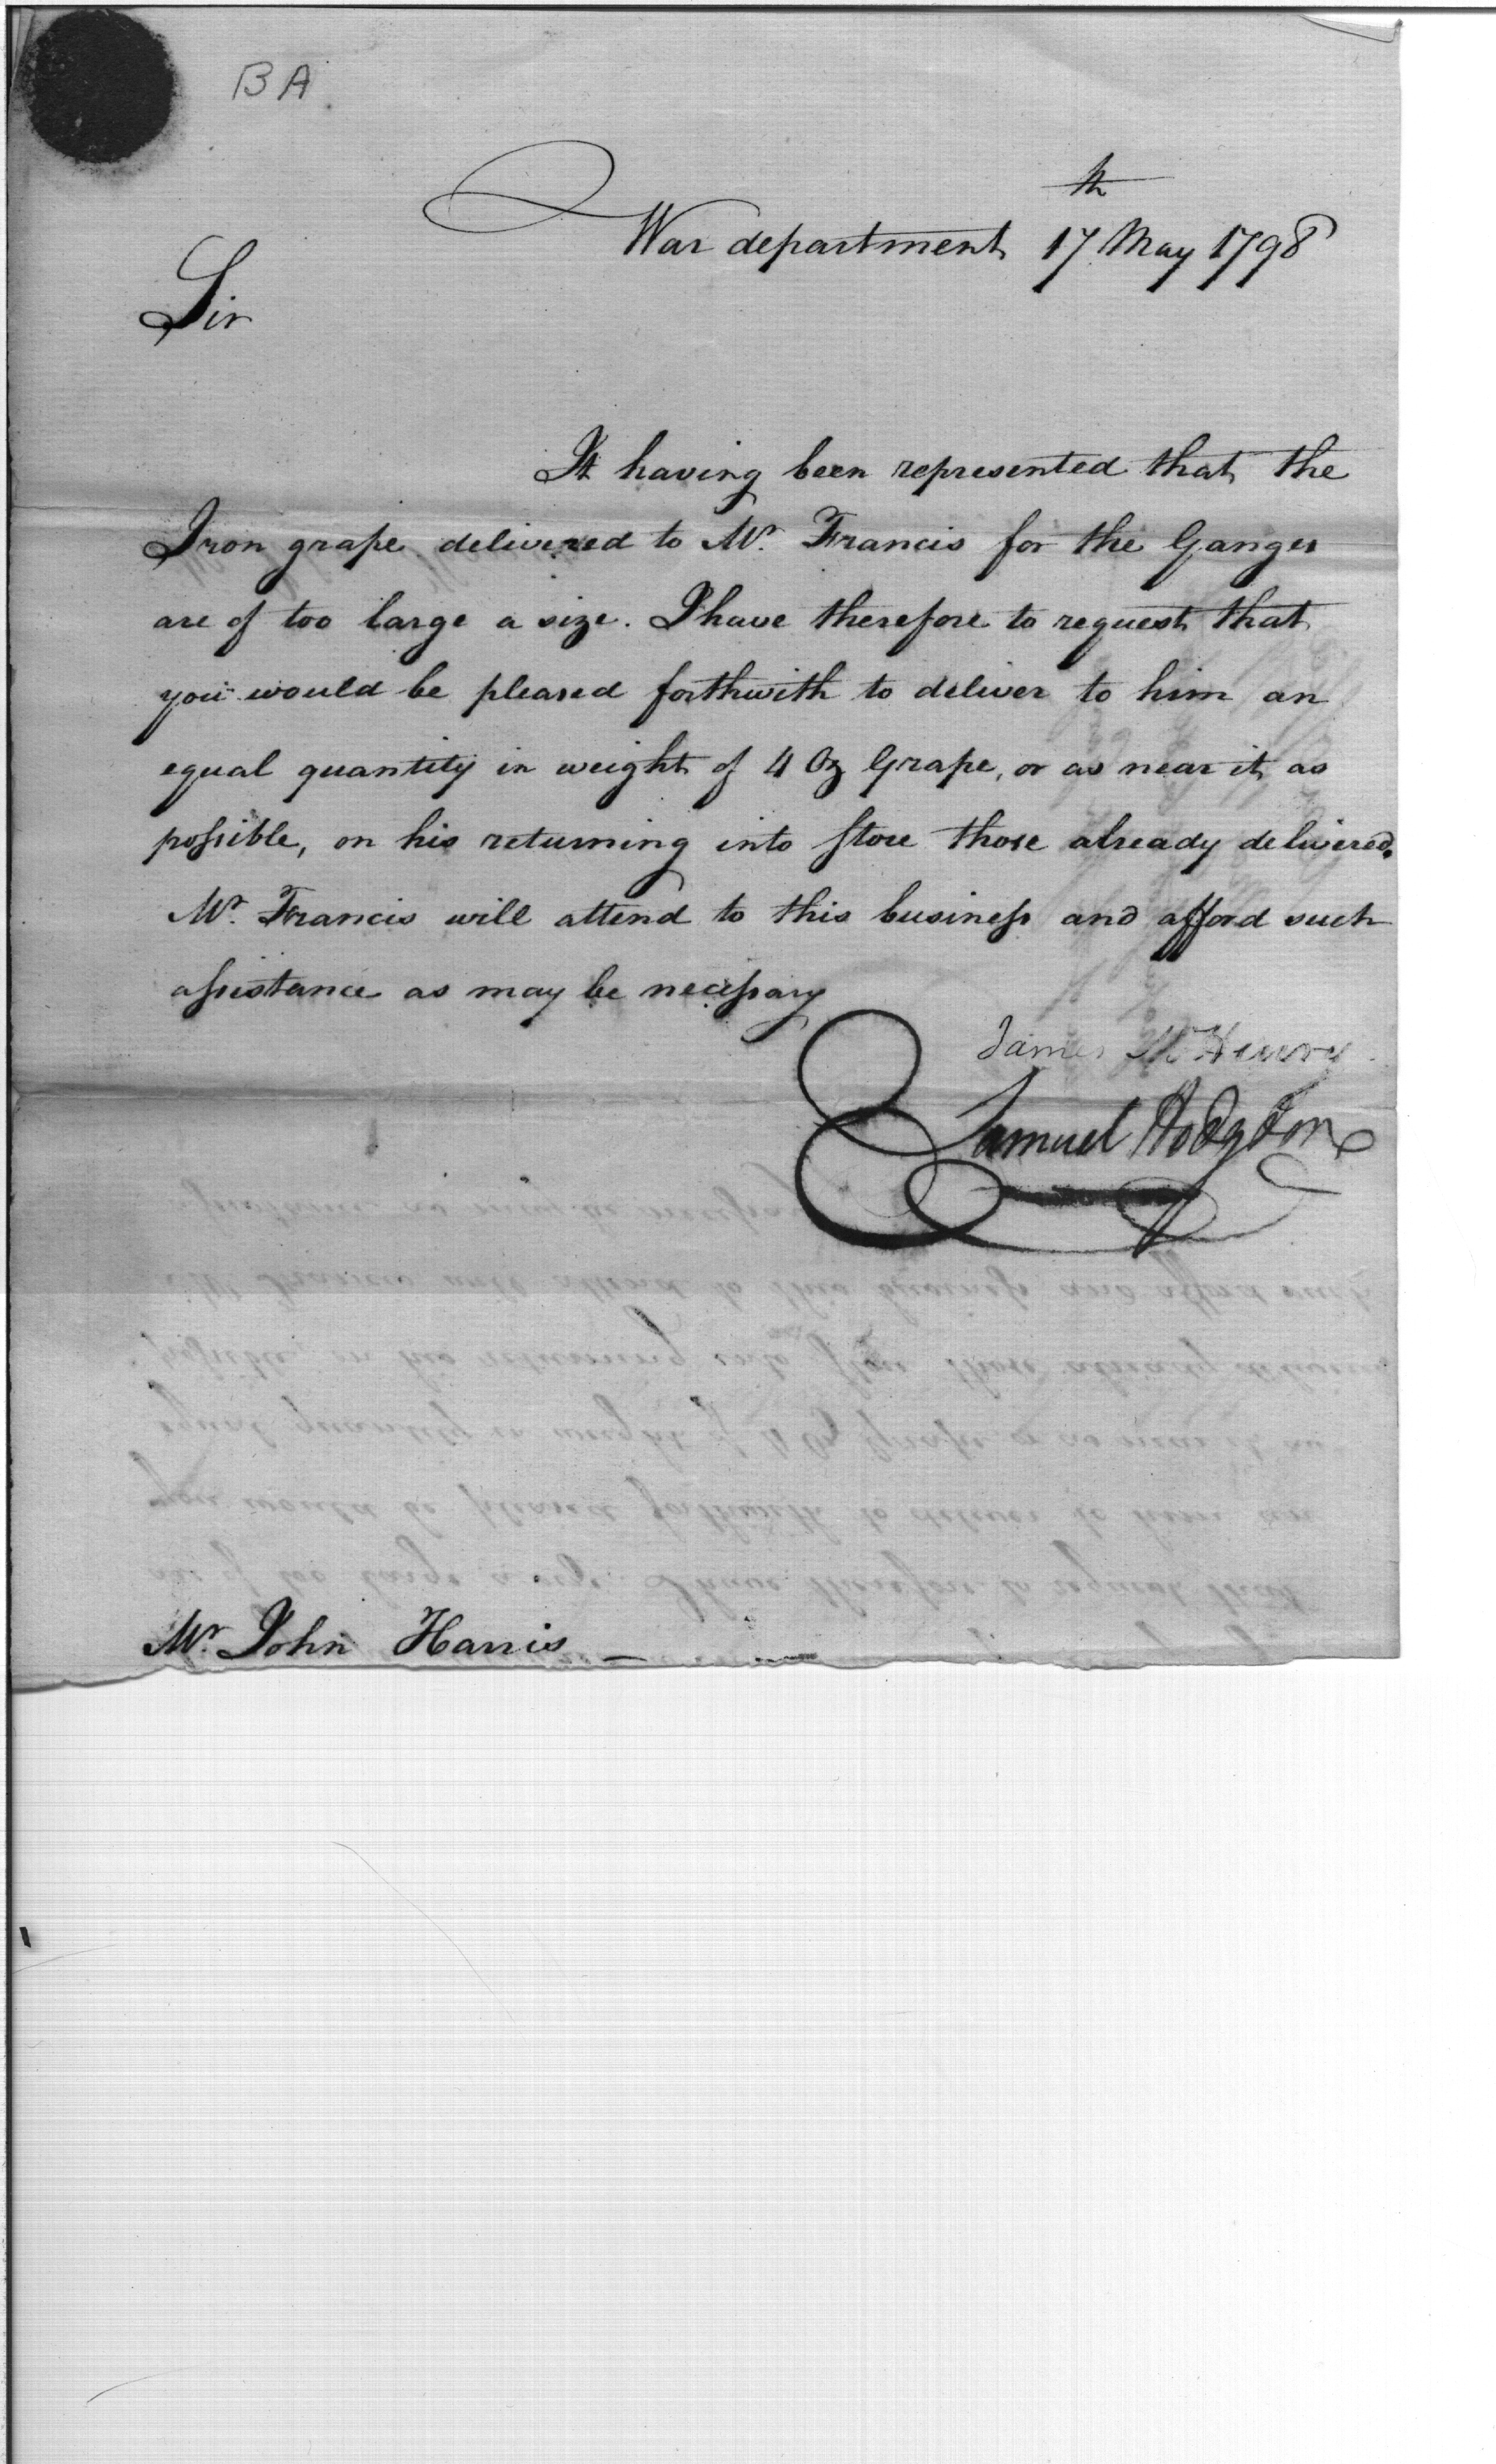 BA
War department 17th May 1798
Sir
It having been represented that the
Iron grape delivered to Mr. Francis for the Ganges
are of too large a size. I have therefore to request that
you would be pleased forthwith to deliver to him an
equal quantity in weight of 4 Oz Grape, or as near it as
possible, on his returning into Store those already delivered.
Mr. Francis will attend to this business and afford such
assistance as may be necessary
James McHenry
Samuel Hodgdon
Mr. John Harris